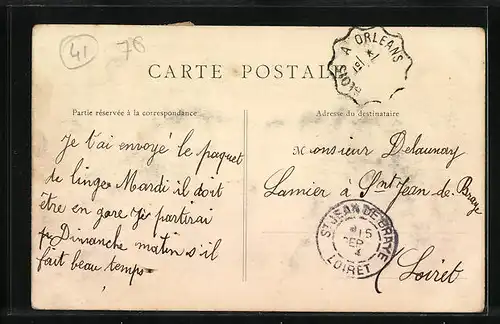 41 78
BLOIS A ORLEANS
CARTE POSTALE
Partie réservée à la correspondance
Adresse du destinataire
Je t'ai envoyé le paquet
de linge Mardi il doit
être en gare Je partirai
Dimanche matin s'il
fait beau temps
Monsieur Delaunay
Lamier à St Jean-de-Braye
Loiret
ST JEAN DE BRAYE
15
SEPT
LOIRET